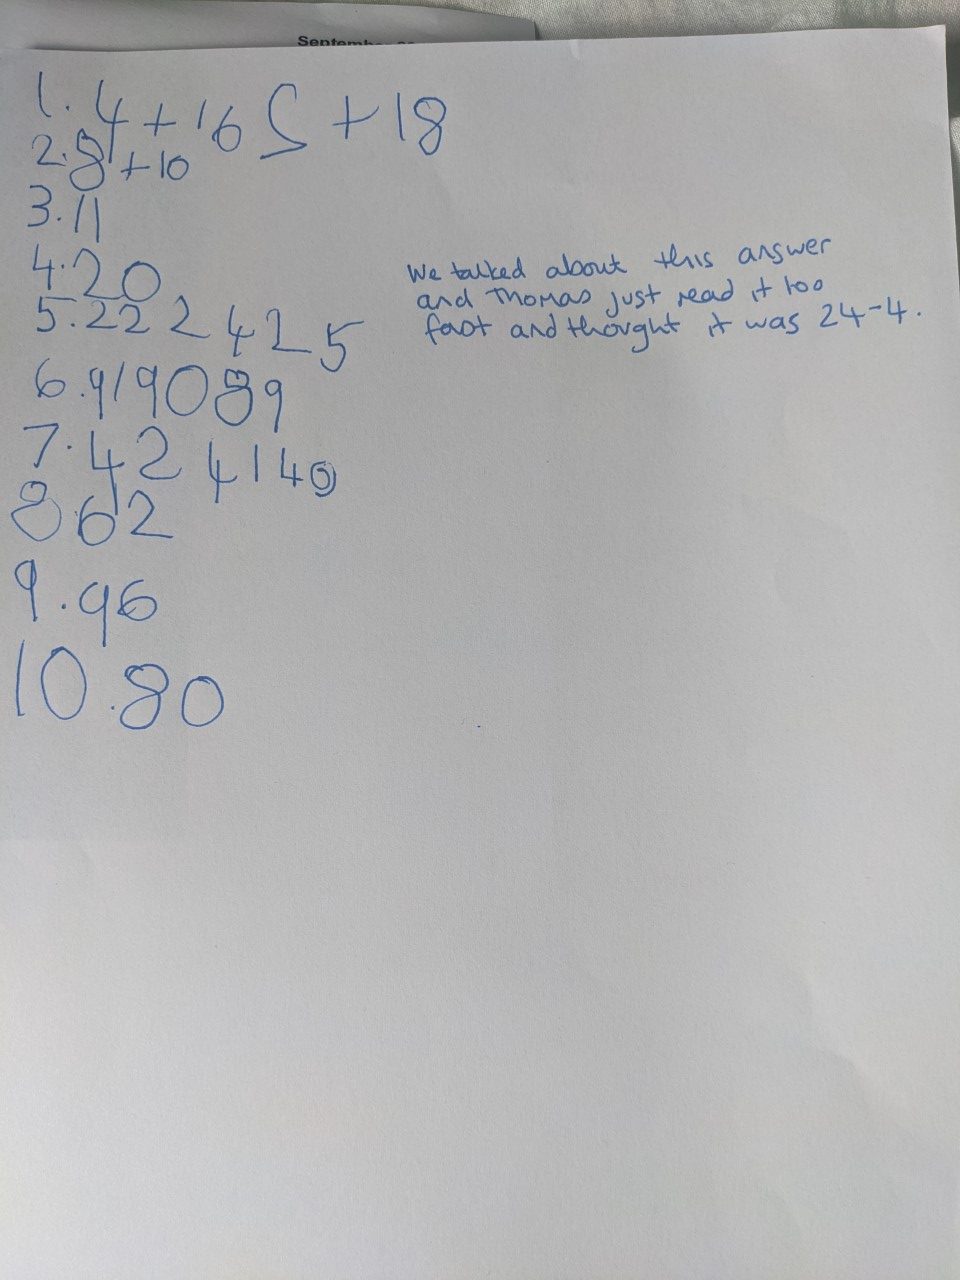 September
1. 4+16 5 +18
2. 8+10
3. 11
4. 20
5. 22 2 4 2 5
6. 91 90 89
7. 42 41 40
8 62
9. 96
10. 80
We talked about this answer
and Thomas just read it too
fast and thought it was 24-4.